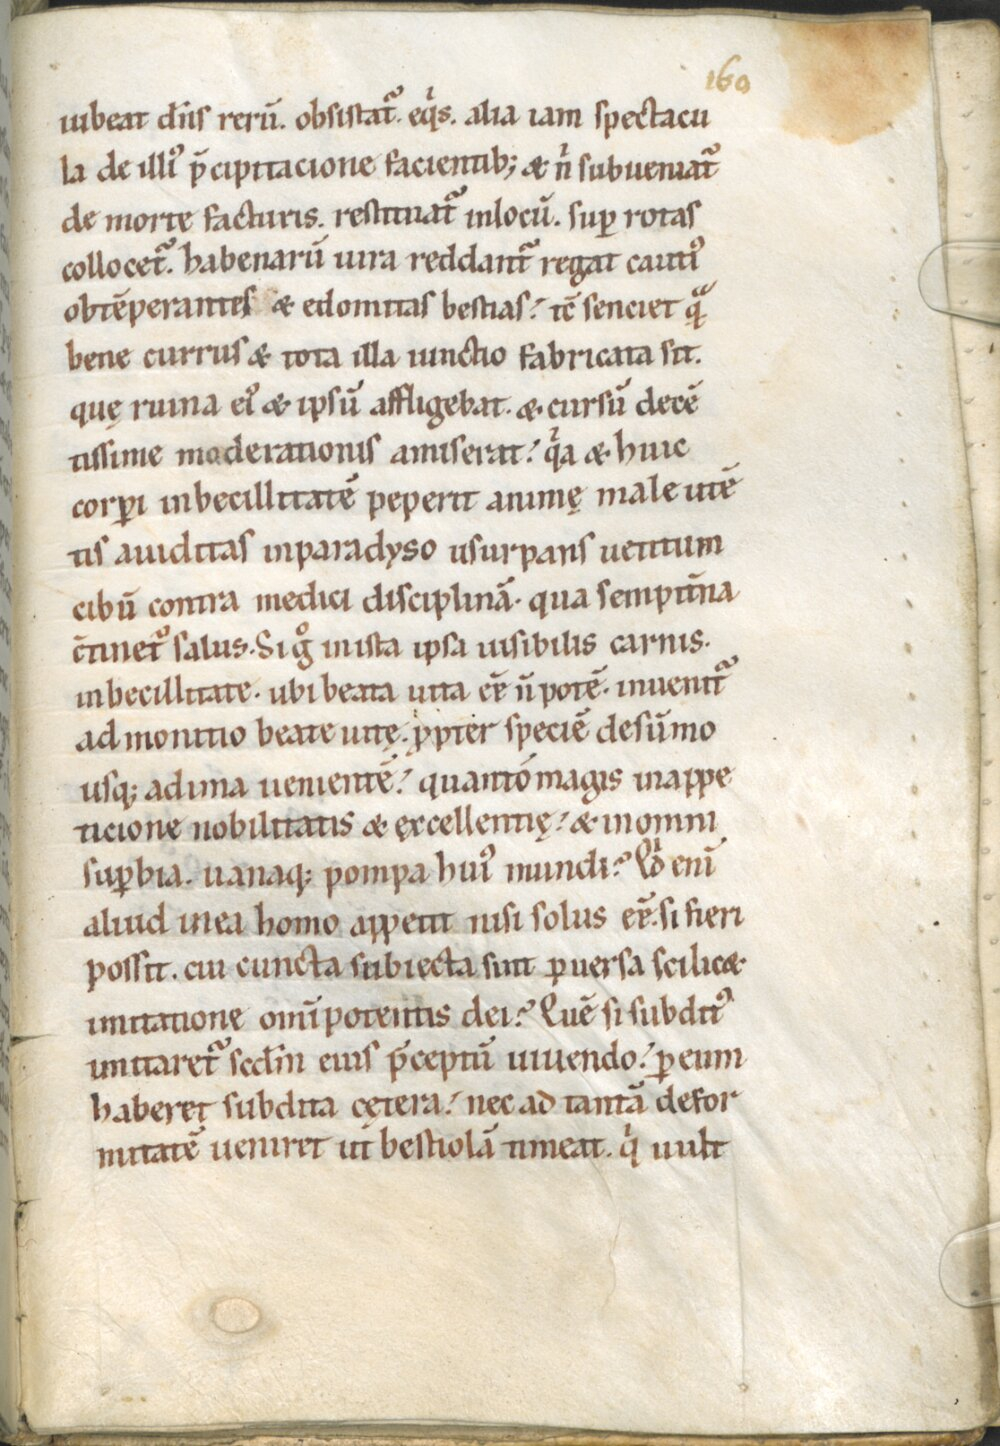 160
iubeat dn̄s rerū. obsistat᷑. eqͥs. alia iam spectacu
la de illi᷒ p̄cipitacione facientib; & n̄ subueniat᷑
de morte facturis. restituat᷑ inlocū. suꝑ rotas
collocet᷑. habenarū iura reddant᷑ regat cauti᷒
obtēperantes & edomitas bestias? tc̄ senciet qͣ
bene currus & tota illa iunctio fabricata sit.
quę ruina ei᷒ & ipsū affligebat. & cursū decē
tissime moderationis amiserat? qͥa & huic
corꝑi inbecillitatē peperit animę male utē
tis auiditas inparadyso usurpans uetitum
cibū contra medici disciplinā. qua sempit̄na
c̄tinet᷑ salus. Si gͦ inista ipsa uisibilis carnis.
inbecillitate. ubi beata uita eē n̄ potē. inuenit᷑
admonitio beate uitę. ꝓpter speciē desūmo
usq; adima uenientē? quantomagis inappe
ticione nobilitatis & ęxcellentię? & inomni
suꝑbia. uanaq; pompa hui᷒ mundi? Qͥd enī
aliud inea homo appetit nisi solus eē. si fieri
possit. cui cuncta subiecta sint ꝑuersa scilic&
imitatione omīpotentis dei? Quē si subdit᷒
imitaret᷑ scdm̄ eius p̄ceptū uiuendo? ꝑ eum
haberet subdita cętera? nec ad tantā defor
mitatē ueniret ut bestiolā timeat. qͥ uult